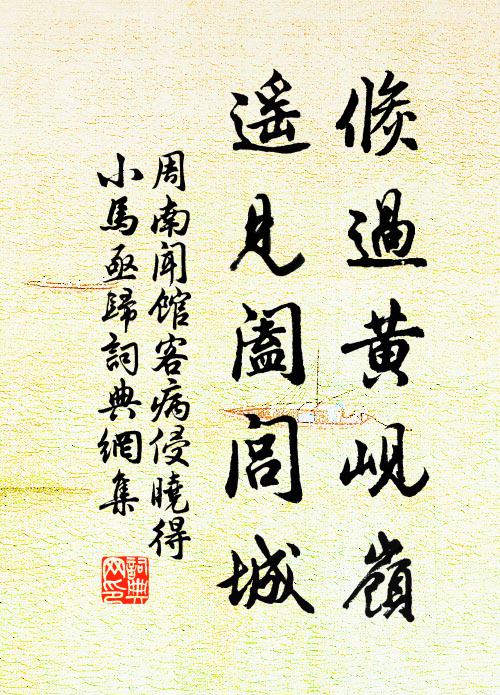 倏過黄峴嶺
遥見闔閭城
周南聞館客病侵曉得
小馬亟歸詞典網集
詞典网印